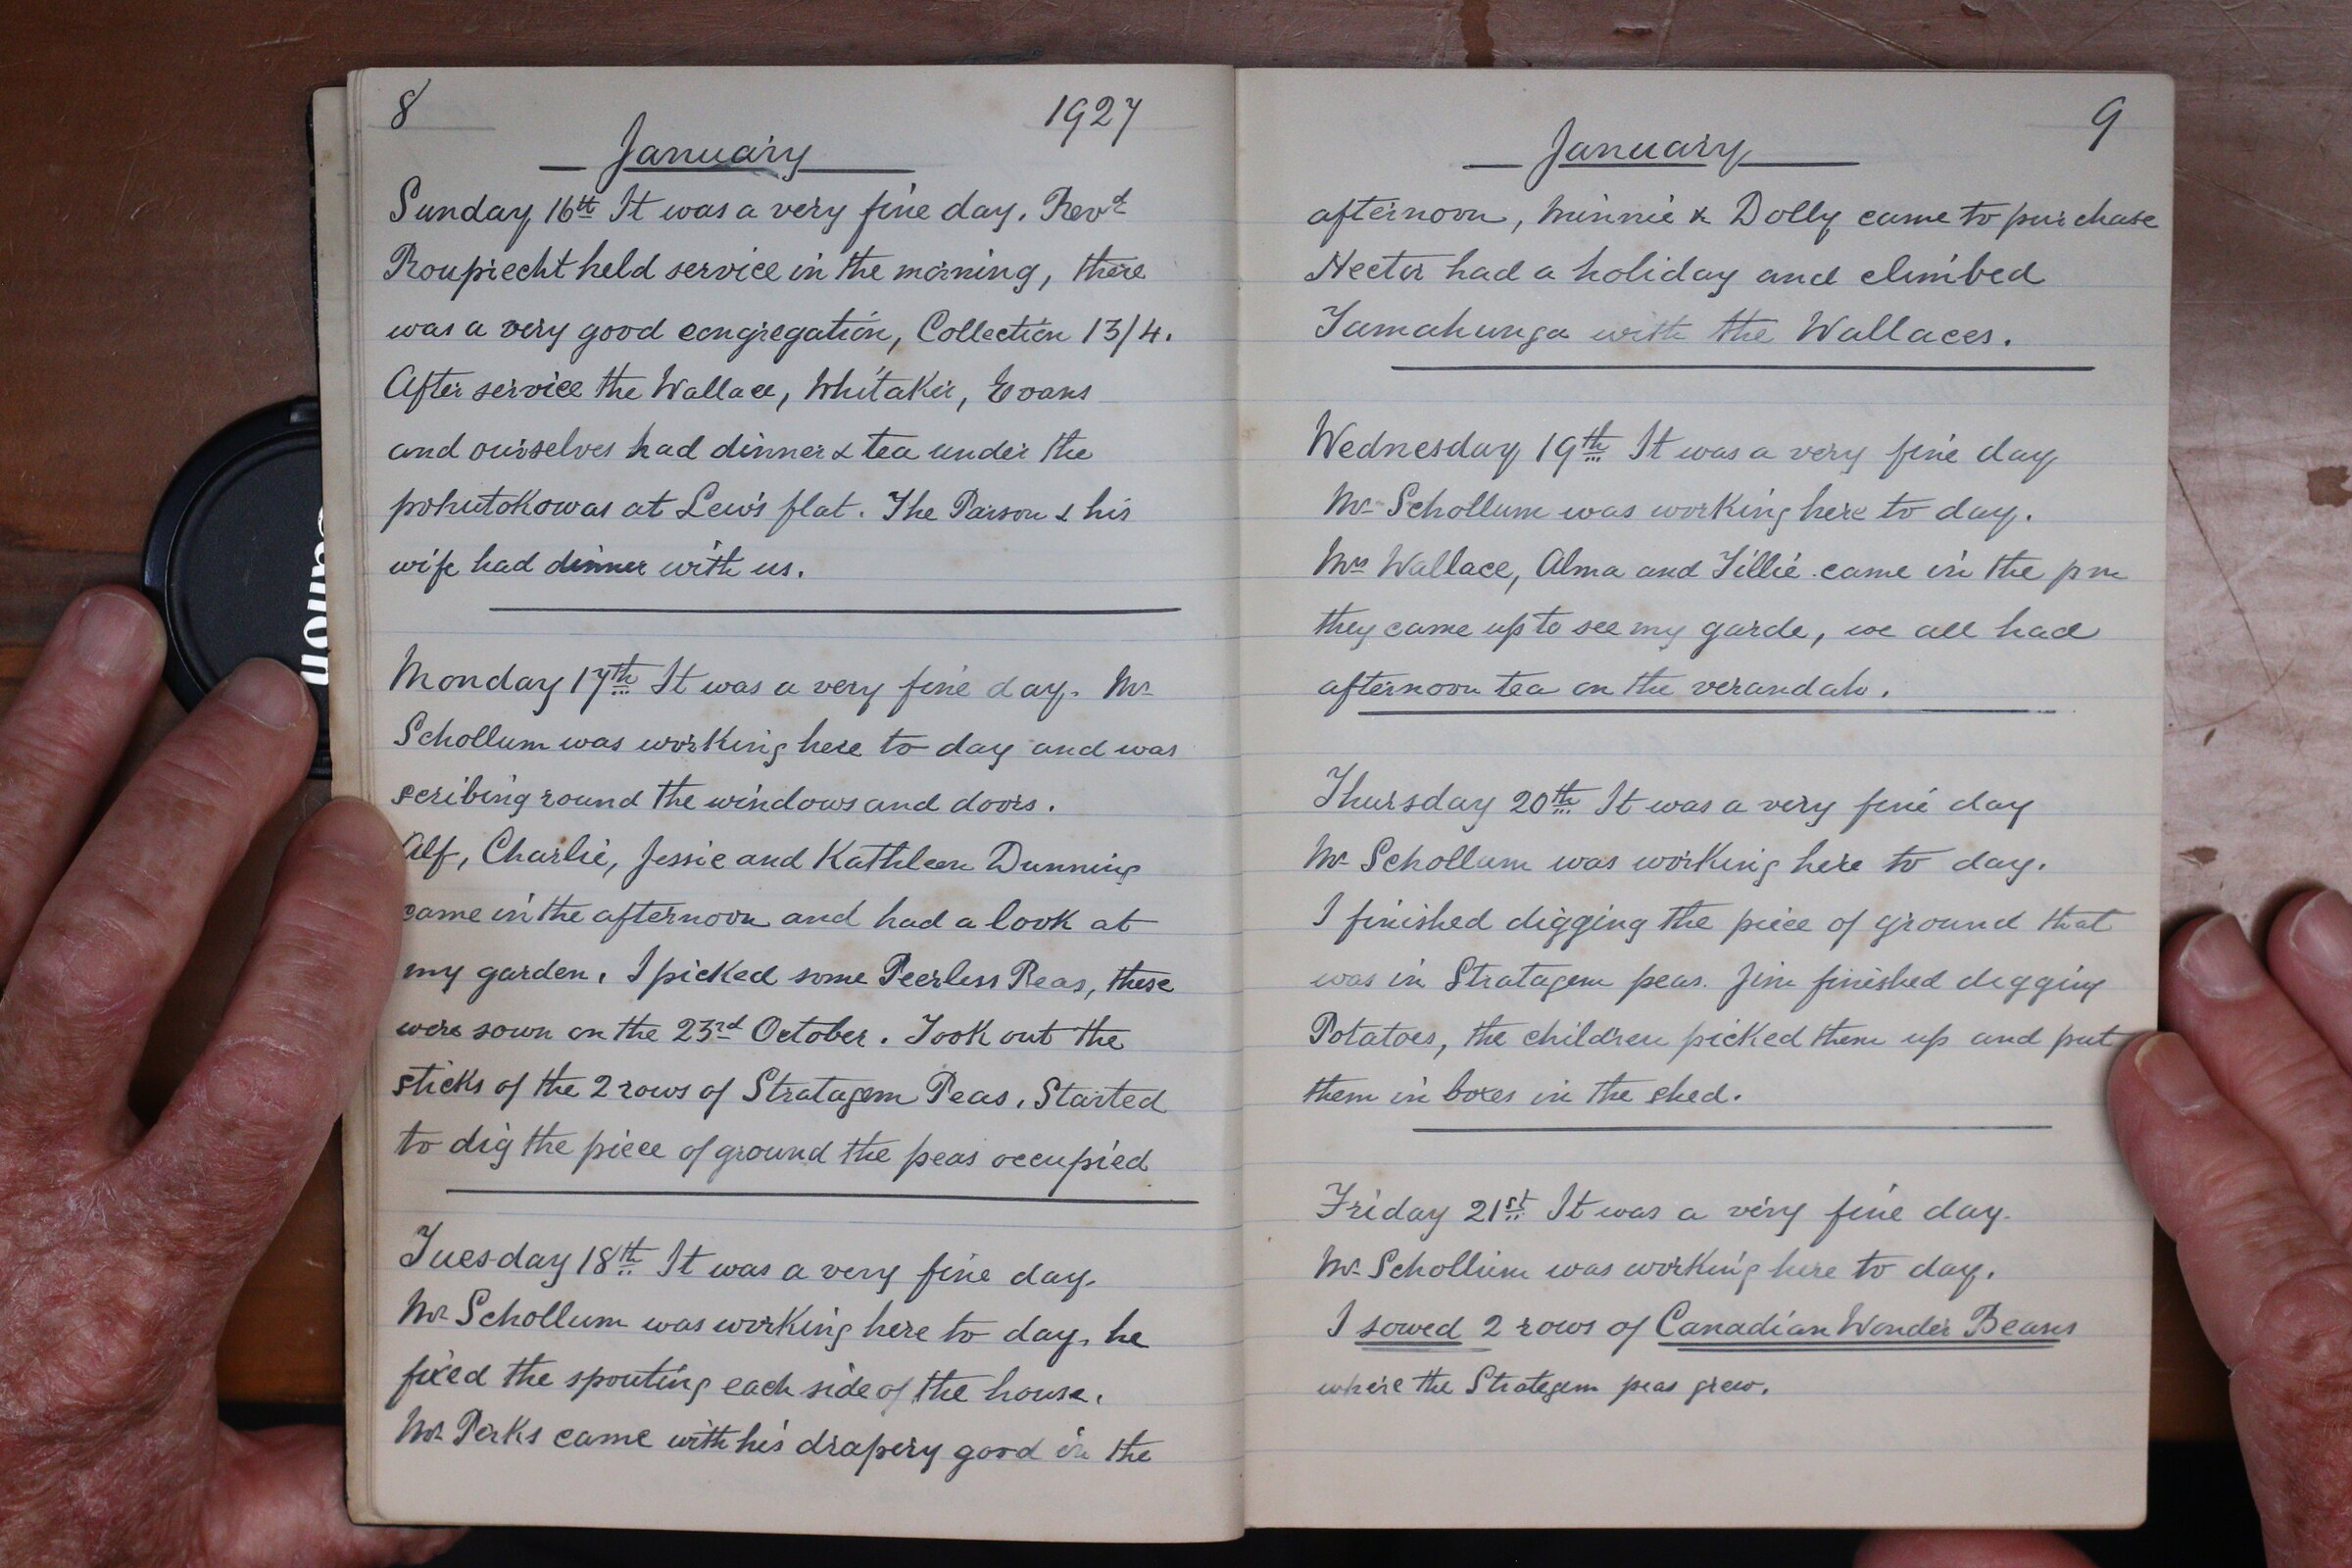 8
1927
January
Sunday 16th It was a very fine day. Revd
Rouprecht held service in the morning, there
was a very good congregation, Collection 13/4.
After service the Wallace, Whitaker, Evans
and ourselves had dinner & tea under the
pohutokowas at Lew's flat. The Parson & his
wife had dinner with us.
Monday 17th It was a very fine day. Mr
Schollum was working here to day and was
scribing round the windows and doors.
Alf, Charlie, Jessie and Kathleen Dunning
came in the afternoon and had a look at
my garden. I picked some Peerless Peas, these
were sown on the 23rd October. Took out the
sticks of the 2 rows of Stratagem Peas. Started
to dig the piece of ground the peas occupied
Tuesday 18th It was a very fine day.
Mr Schollum was working here to day, he
fixed the spouting each side of the house.
Mr Perks came with his drapery good in the
9
January
afternoon, Minnie & Dolly came to purchase
Hector had a holiday and climbed
Tamahunga with the Wallaces.
Wednesday 19th It was a very fine day
Mr Schollum was working here to day.
Mrs Wallace, Alma and Tillie came in the pm
they came up to see my garde, we all had
afternoon tea on the verandah.
Thursday 20th It was a very fine day
Mr Schollum was working here to day.
I finished digging the piece of ground that
was in Stratagem peas. Jim finished digging
Potatoes, the children picked them up and put
them in boxes in the shed.
Friday 21st It was a very fine day.
Mr Schollum was working here to day.
I sowed 2 rows of Canadian Wonder Beans
where the Strategem peas grew.